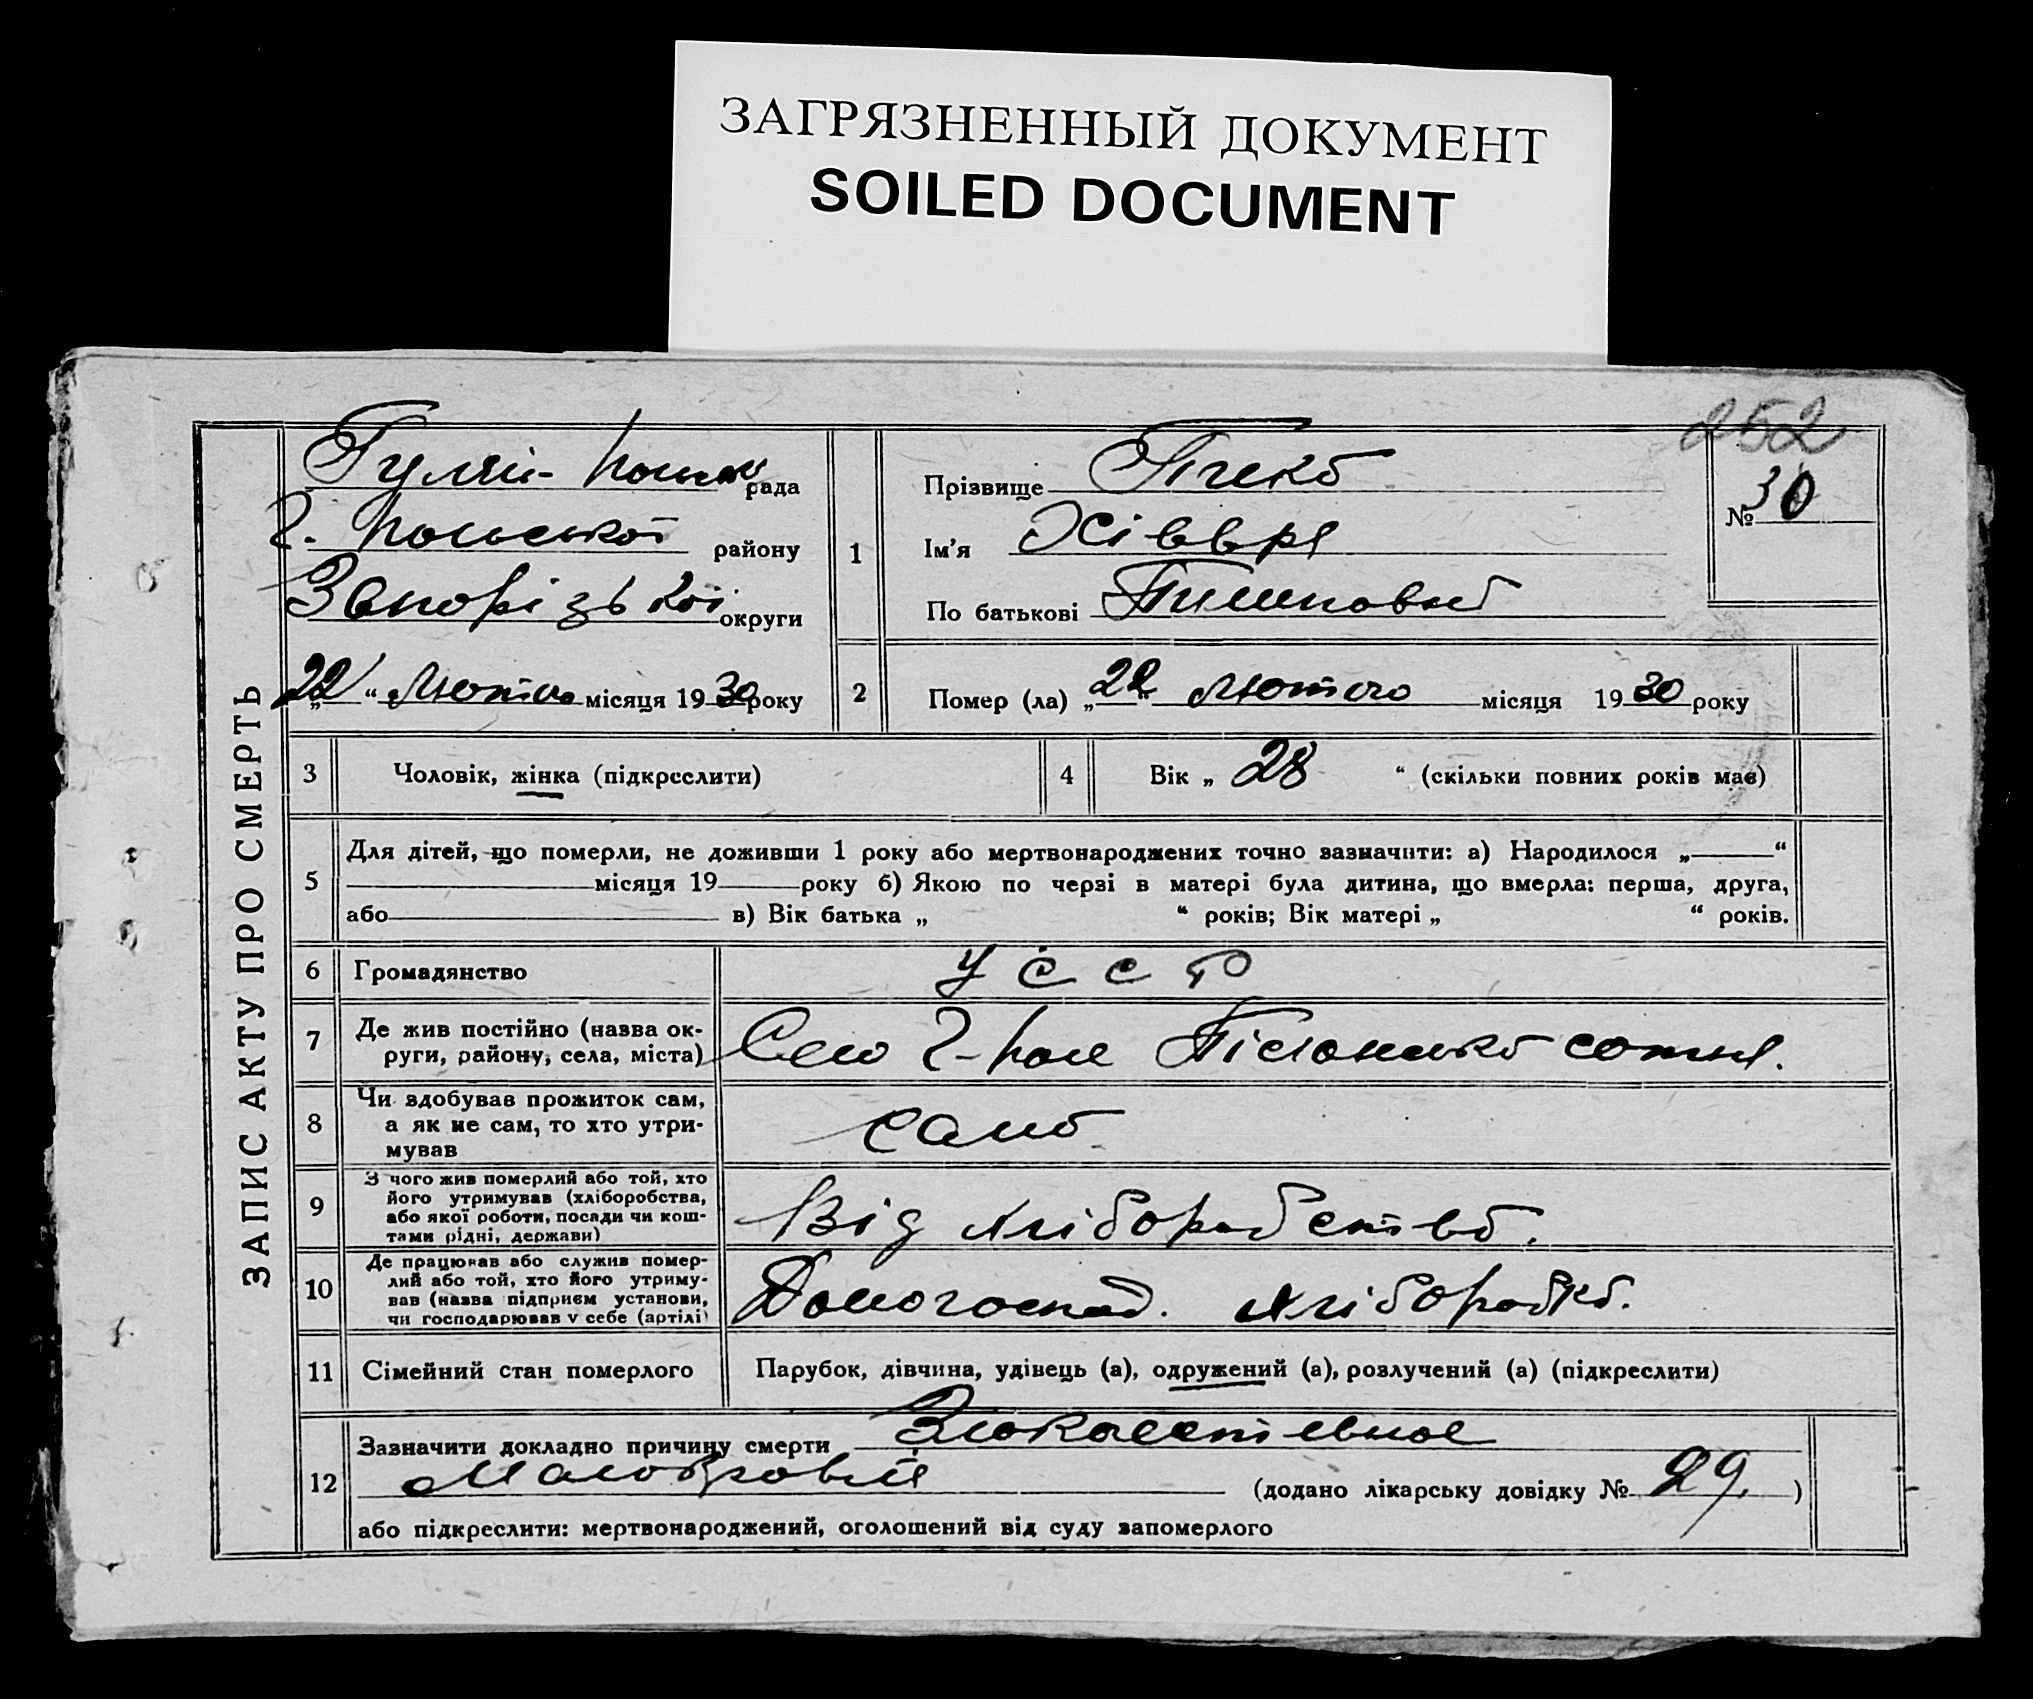 ЗАГРЯЗНЕННЫЙ ДОКУМЕНТ
SOILED DOCUMENT
252
ЗАПИС АКТУ ПРО СМЕРТЬ
Гуляй- рада
Г. району
Запорізької округи
„22“ Лютого місяця 1930 року
1
Прізвище
Ім’я Хіввря
По батькові
№ 30
2 Помер (ла) „22“ Лютого місяця 1930 року
3 Чоловік, жінка (підкреслити)
4 Вік „ 28 “ (скільки повних років має)
5 Для дітей, що померли, не доживши 1 року або мертвонароджених точно зазначити: а) Народилося „ “
місяця 19 року б) Якою по черзі в матері була дитина, що вмерла: перша, друга,
або в) Вік батька „ “ років; Вік матері „ “ років.
6 Громадянство УССР
7 Де жив постійно (назва ок-
руги, району, села, міста) Село Г-Поле сотня.
8 Чи здобував прожиток сам,
а як не сам, то хто утри-
мував
сама
9 З чого жив померлий або той, хто
його утримував (хліборобства,
або якої роботи, посади чи кош-
тами рідні, держави)
Від хліборобства.
10 Де працював або служив помер-
лий або той, хто його утриму-
вав (назва підприєм установи,
чи господарював у себе (артілі)
Домогоспод. хліборобка.
11 Сімейний стан померлого Парубок, дівчина, удівець (а), одружений (а), розлучений (а) (підкреслити)
12 Зазначити докладно причину смерти Злокачественое
Малокровия (додано лікарську довідку № 29. )
або підкреслити: мертвонароджений, оголошений від суду запомерлого